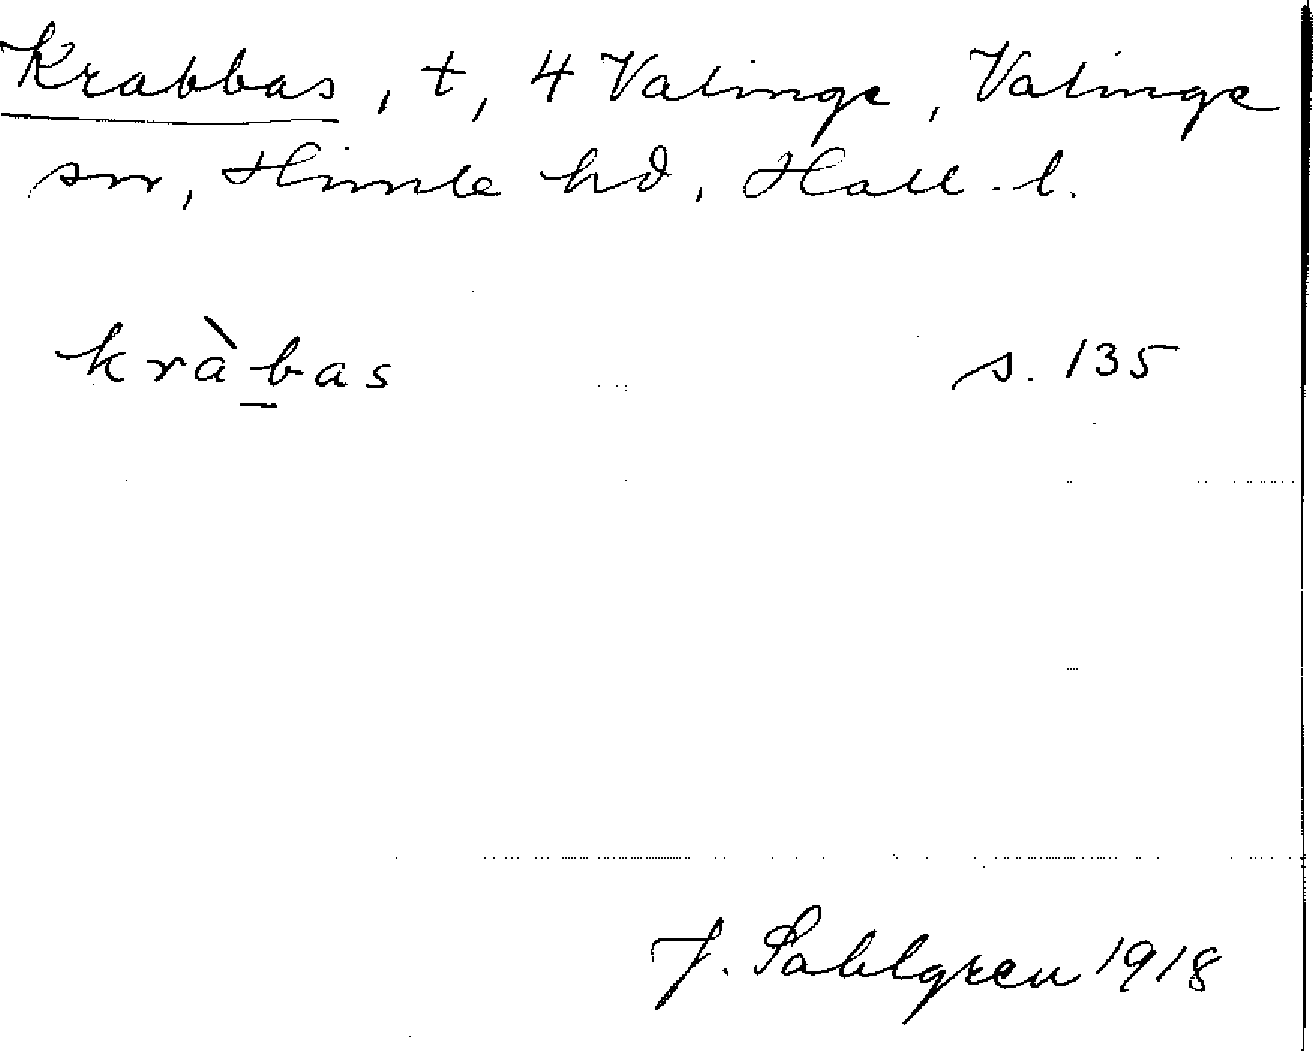 Krabbas, t, 4 Valinge, Valinge
sn, Himle hd, Hall. l.
kràbas s. 135
J. Sahlgren 1918